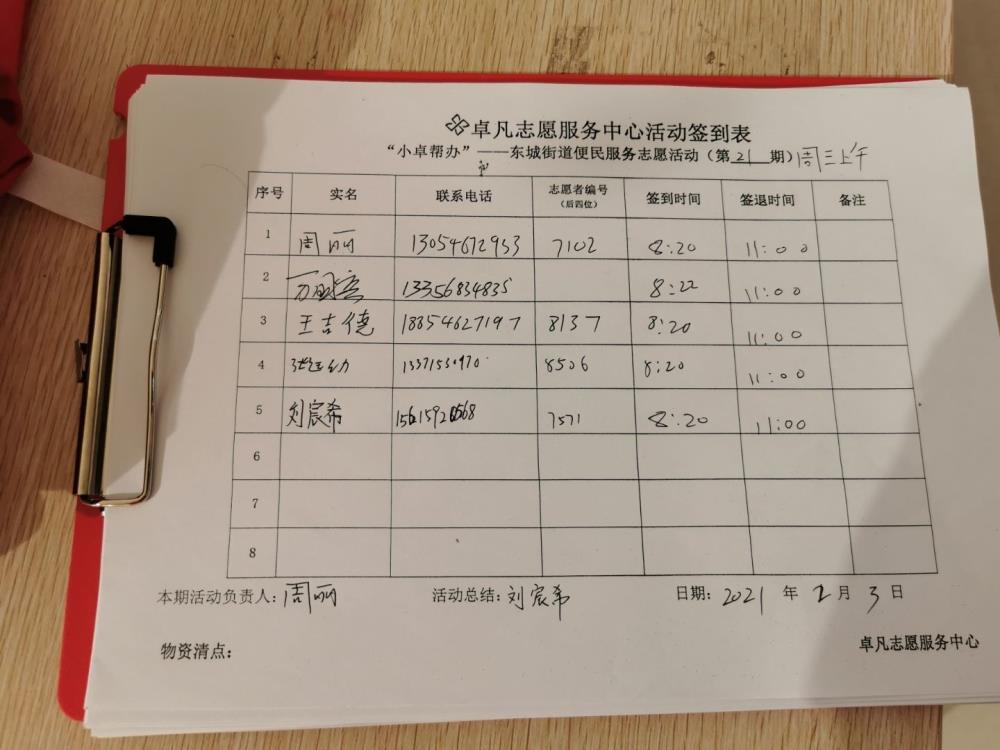 卓凡志愿服务中心活动签到表
“小卓帮办”——东城街道便民服务志愿活动（第 21 期）周三上午
序号 实名 联系电话 志愿者编号（后四位） 签到时间 签退时间 备注
1 周丽 13054672953 7102 8:20 11:00
2 13356834835 8:22 11:00
3 王吉德 18854627197 8137 8:20 11:00
4 13371530970 8506 8:20 11:00
5 刘宸希 7571 8:20 11:00
6
7
8
本期活动负责人：周丽 活动总结：刘宸希 日期：2021 年 2 月 3 日
物资清点： 卓凡志愿服务中心